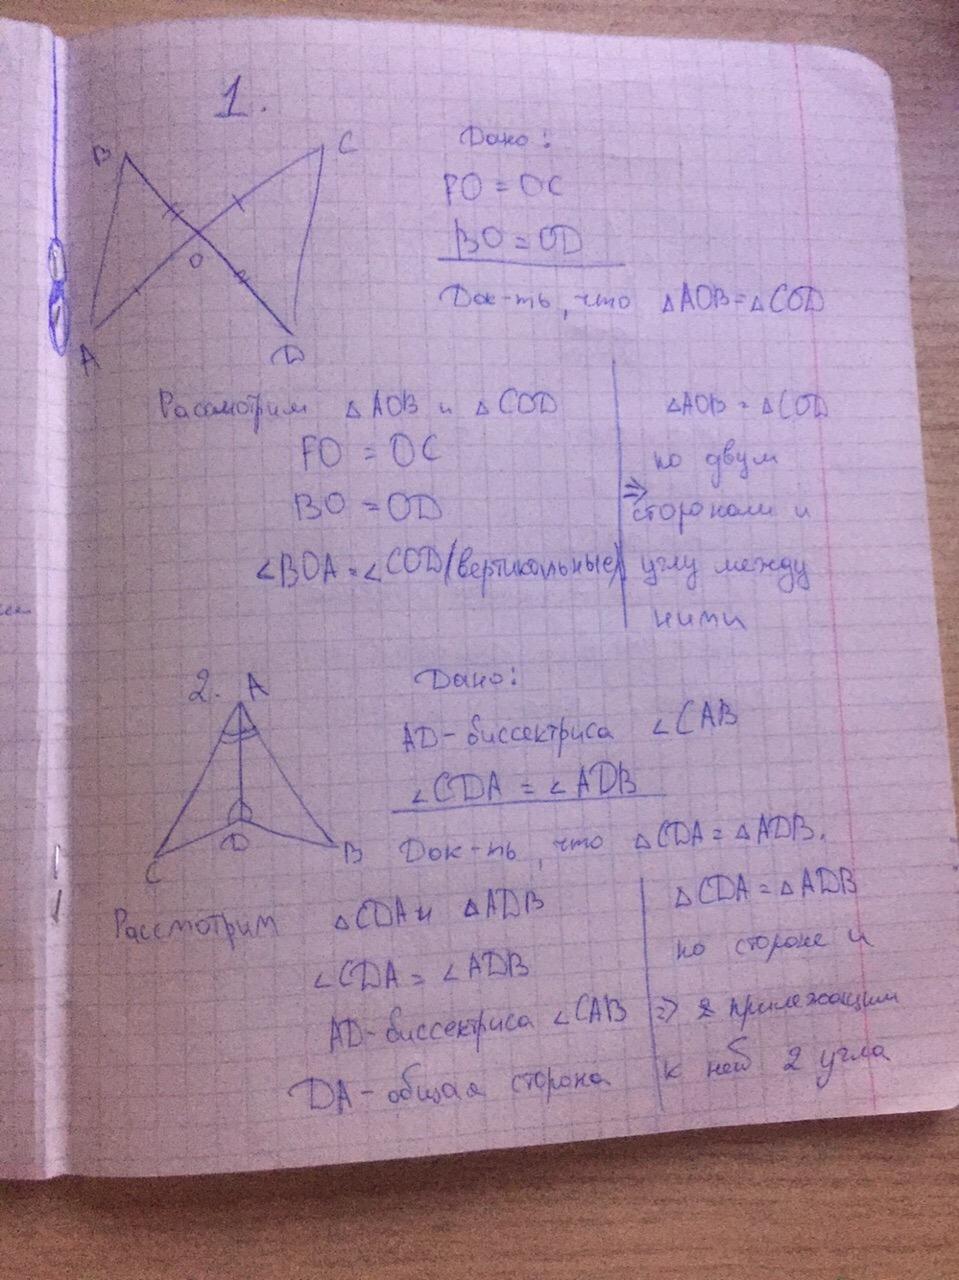 1.
B
C
O
A
D
Дано:
FO = OC
BO = OD
Док-ть, что △AOB = △COD
Рассмотрим △AOB и △COD
FO = OC
BO = OD
∠BOA = ∠COD (вертикальные)
△AOB = △COD
по двум
⇒ сторонам и
углу между
ними
2.
A
D
C
B
Дано:
AD - биссектриса ∠CAB
∠CDA = ∠ADB
Док-ть, что △CDA = △ADB.
Рассмотрим △CDA и △ADB
∠CDA = ∠ADB
AD - биссектриса ∠CAB
DA - общая сторона
△CDA = △ADB
по стороне и
⇒ прилежащим
к ней 2 угла